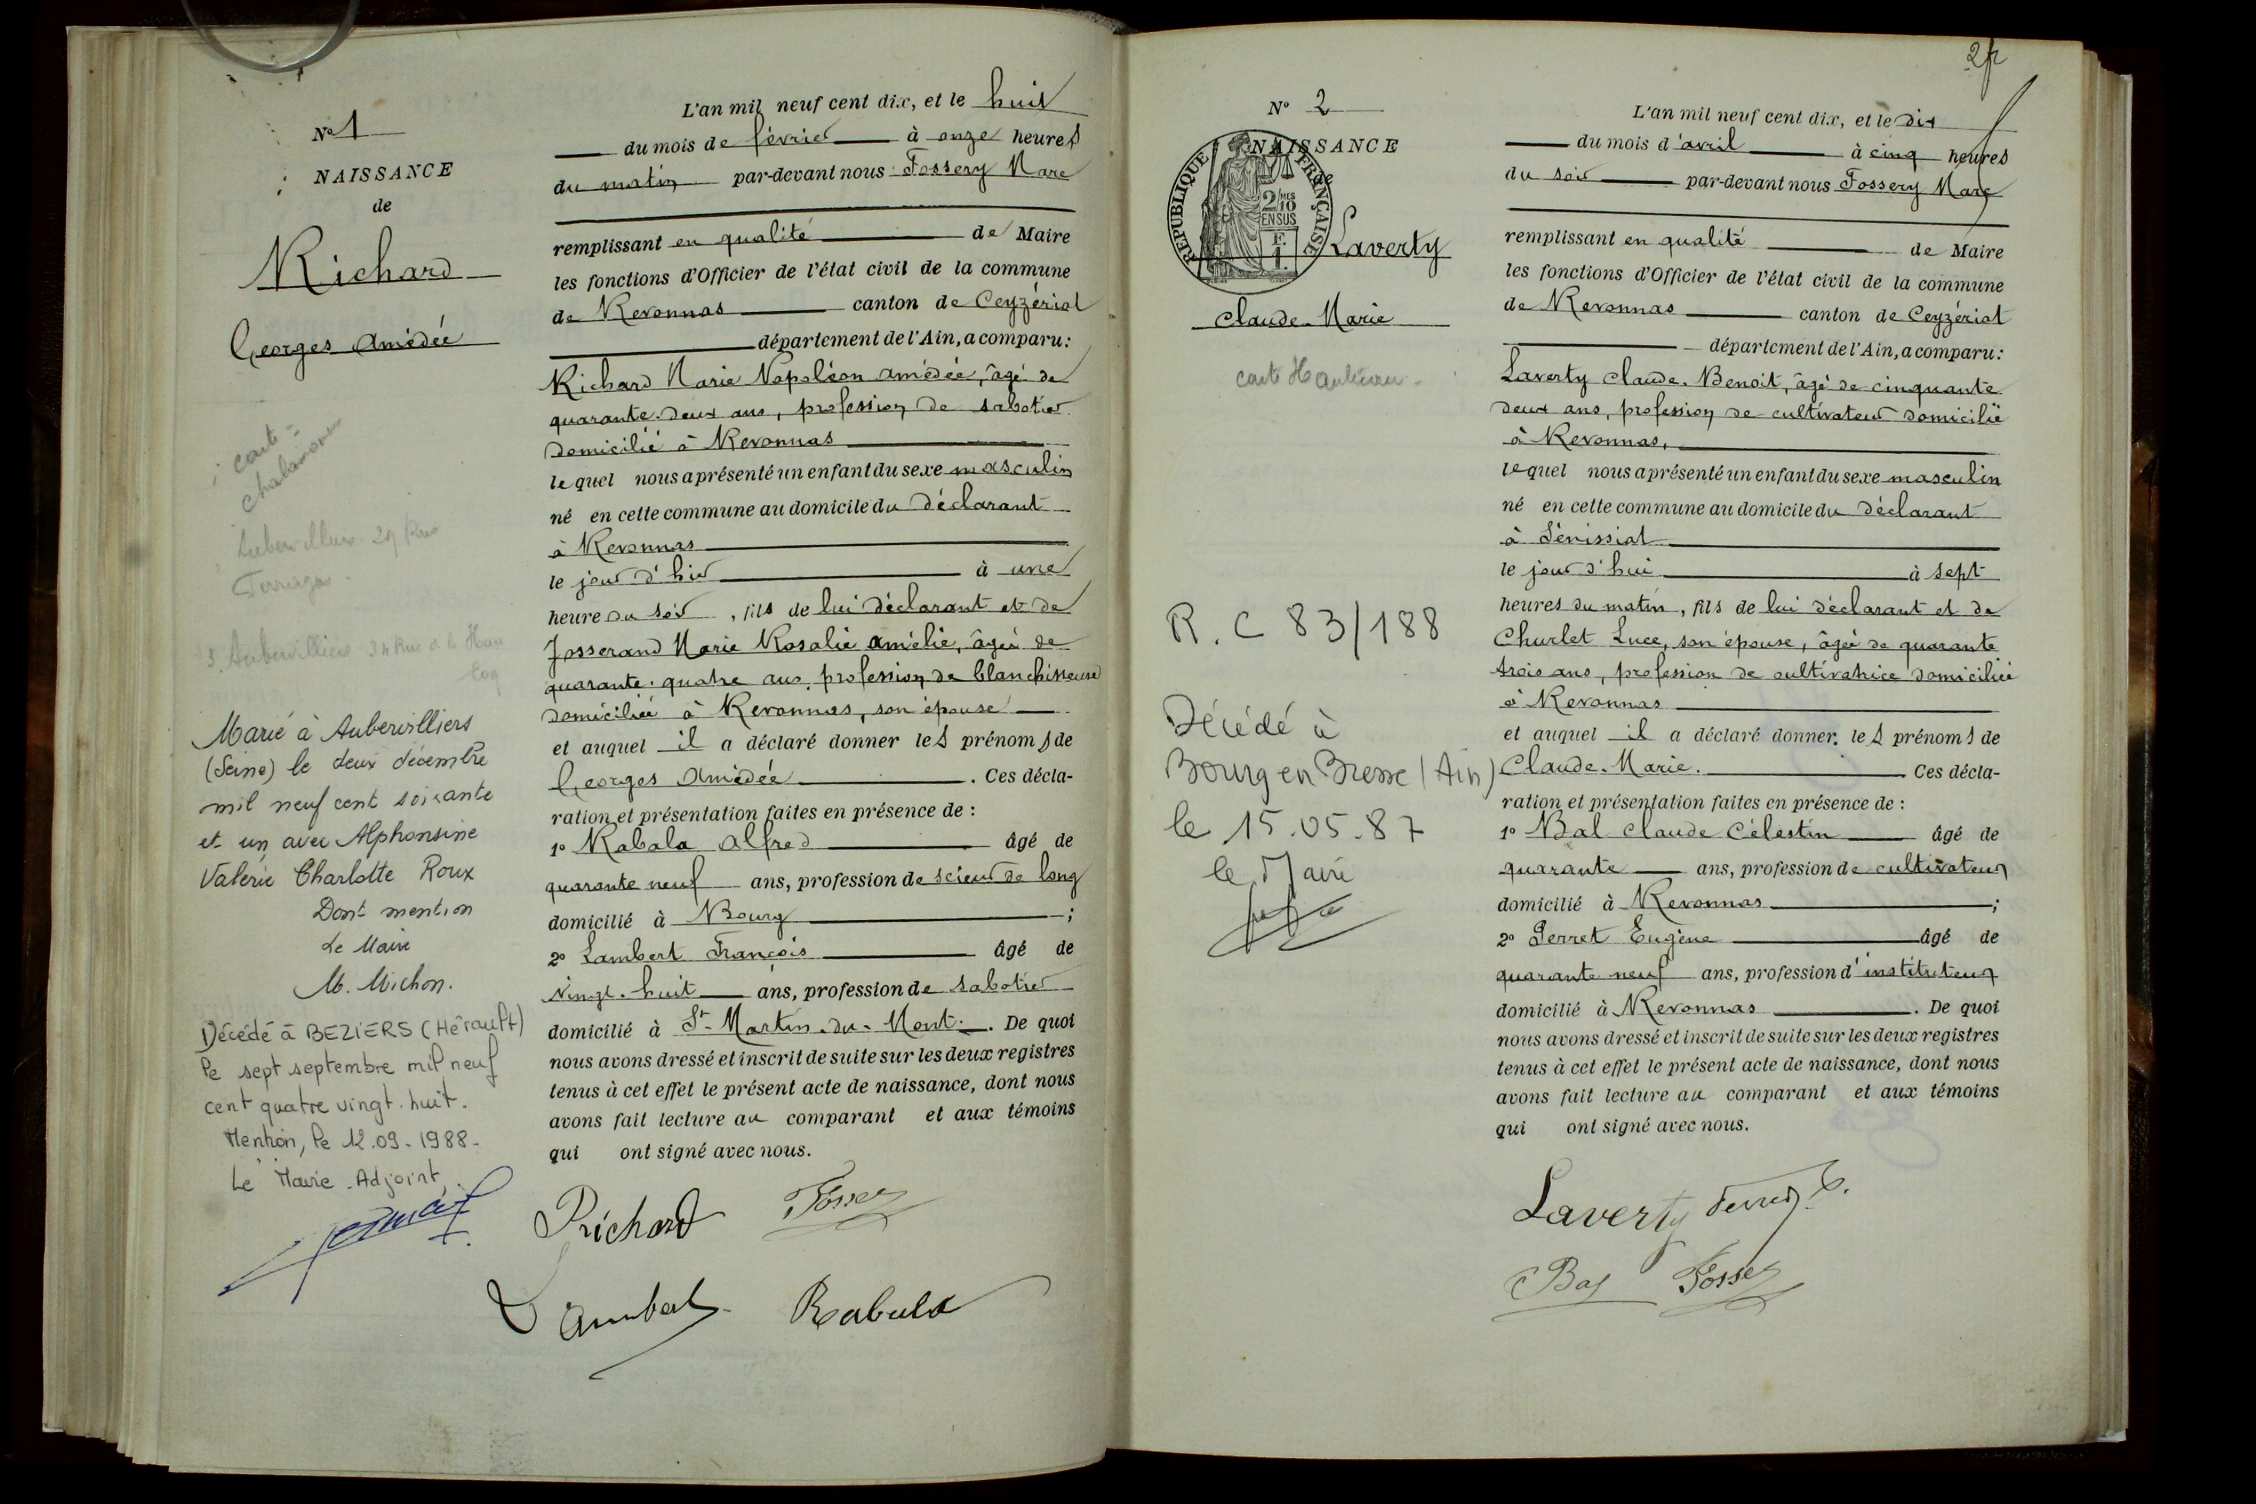 N° 1
NAISSANCE
de
Richard
Georges Amédée
carte
Aubervilliers 34 Rue de la
Marié à Aubervilliers
(Seine) le deux décembre
mil neuf cent soixante
et un avec Alphonsine
Valérie Charlotte Roux
Dont mention
Le Maire
M. Michon.
Décédé à BEZIERS (Hérault)
le sept septembre mil neuf
cent quatre vingt. huit.
Mention, le 12.09-1988-
Le Maire-Adjoint,
L'an mil neuf cent dix, et le huit
du mois de février à onze heures
du matin par-devant nous Fossery Marc
remplissant en qualité de Maire
les fonctions d'Officier de l'état civil de la commune
de Revonnas canton de Ceyzériat
département de l'Ain, a comparu:
Richard Marie Napoléon Amédée, âgé de
quarante-deux ans, profession de sabotier
domicilié à Revonnas
lequel nous a présenté un enfant du sexe masculin
né en cette commune au domicile du déclarant
à Revonnas
le jour d'hier à une
heure du soir, fils de lui déclarant et de
Josserand Marie Rosalie Amélie, âgée de
quarante-quatre ans, profession de blanchisseuse
domiciliée à Revonnas, son épouse
et auquel il a déclaré donner les prénoms de
Georges Amédée. Ces décla-
ration et présentation faites en présence de :
1° Rabala Alfred âgé de
quarante neuf ans, profession de scieur de long
domicilié à Bourg ;
2° Lambert François âgé de
vingt-huit ans, profession de sabotier
domicilié à St-Martin-du-Mont. De quoi
nous avons dressé et inscrit de suite sur les deux registres
tenus à cet effet le présent acte de naissance, dont nous
avons fait lecture au comparant et aux témoins
qui ont signé avec nous.
Richard Fossery
Lambert Rabula
2
N° 2
NAISSANCE
de
REPUBLIQUE FRANÇAISE
2/10 MES
EN SUS
F.
1.
Laverty
Claude-Marie
R.C 83/188
Décédé à
Bourg en Bresse (Ain)
le 15.05.87
le Maire
L'an mil neuf cent dix, et le dix
du mois d'avril à cinq heures
du soir par-devant nous Fossery Marc
remplissant en qualité de Maire
les fonctions d'Officier de l'état civil de la commune
de Revonnas canton de Ceyzériat
département de l'Ain, a comparu:
Laverty Claude-Benoit, âgé de cinquante
deux ans, profession de cultivateur domicilié
à Revonnas,
lequel nous a présenté un enfant du sexe masculin
né en cette commune au domicile du déclarant
à Sénissiat
le jour d'hui à sept
heures du matin, fils de lui déclarant et de
Churlet Luce, son épouse, âgée de quarante
trois ans, profession de cultivatrice domiciliée
à Revonnas
et auquel il a déclaré donner les prénoms de
Claude-Marie. Ces décla-
ration et présentation faites en présence de :
1° Bal Claude Célestin âgé de
quarante ans, profession de cultivateur
domicilié à Revonnas ;
2° Perret Eugène âgé de
quarante neuf ans, profession d'instituteur
domicilié à Revonnas. De quoi
nous avons dressé et inscrit de suite sur les deux registres
tenus à cet effet le présent acte de naissance, dont nous
avons fait lecture au comparant et aux témoins
qui ont signé avec nous.
Laverty Perret E.
Bal Fossery